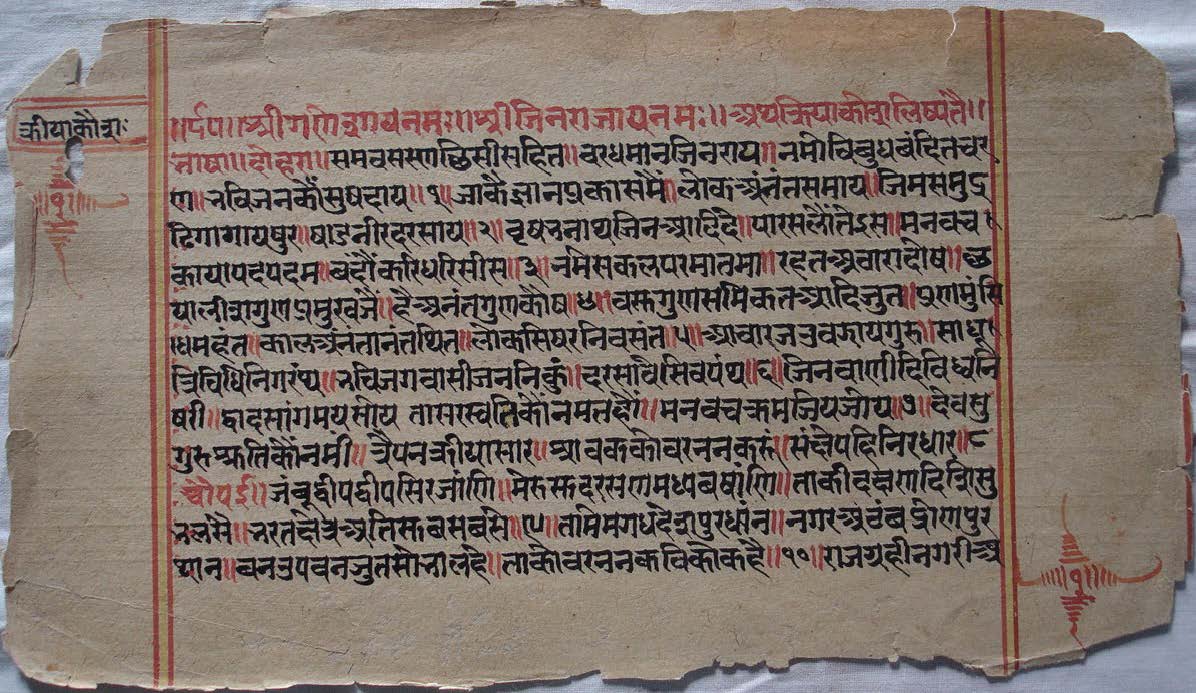 क्रीयाकौशः
॥र्दप॥श्रीगणेशायनमः॥श्रीजिनराजायनमः॥अथक्रियाकोशलिष्यते॥
भाषा॥दोहा॥समवससरणलछिसीसहित॥वरधमानजिनराय॥नमोविबुधवंदितचर
ण॥भविजनकौंसुषदाय॥१॥जाकैज्ञानप्रकासमैं॥लोकअनंतसमाय॥जिमसमुद्र
ढिगागायषुर॥षाडनीरदरसाय॥२॥वृषभनाथजिनआदिदै॥पारसलौंतेइस॥मनवच
कायापदपदम॥वंदौंकरिधरिसीस॥३॥नमैसकलपरमातमा॥रहतअठारादोष॥छ
यालीशगुणप्रमुखजे॥हैअनंतगुणकोष॥४॥वसुगुणसमकितआदिजुत॥प्रणमुसि
धमहंत॥कालअनंतानंतथित॥लोकसिषरनिवसंत॥५॥आचारजउवझायगुरु॥साधू
त्रिविधिनिगरंथ॥भविजगवासीजननिकुं॥दरसावैसिवपंथ॥६॥जिनवाणीदिविधुनि
षरी॥द्वादसांगमयसोय तासरस्वतिकौंनमतहौं॥मनवचक्रमजियजोय॥७॥देवसु
गुरुश्रुतिकौंनमी॥त्रेपनक्रीयासार॥श्रावककीवरननकरुं॥संछेपहिनिरधार॥८
चौपई॥जंबूद्वीपद्वीपसिरजांणि॥मेरुसुदरसणमध्यवषांणि॥ताकीदक्षणदिशिसु
भलसै॥भरतक्षेत्रअतिसुवसवसै॥९॥तामैमगधदेशपुरधांन॥नगरअवंबद्रोणपुर
थान॥वनउपवनजुतसोभालहै॥ताकोवरननकविकोकहै॥१०॥राजग्रहीनगरीअ
१
१